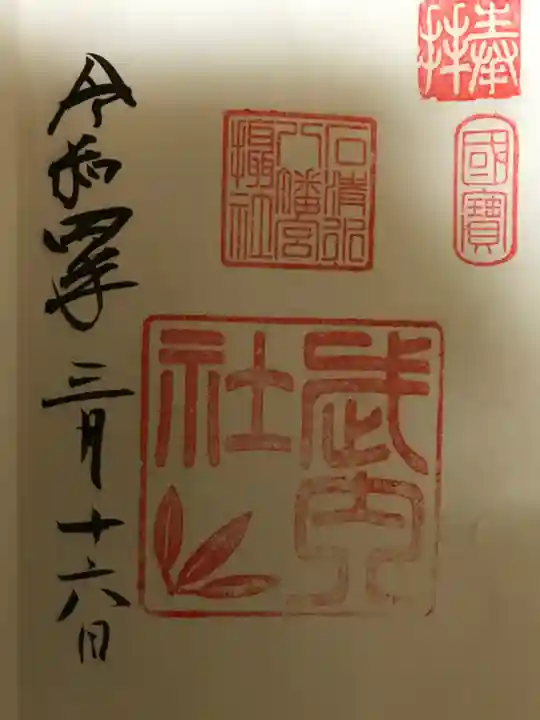 奉拝
國寶
石清水
八幡宮
摂社
武内
社
令和四年三月十六日